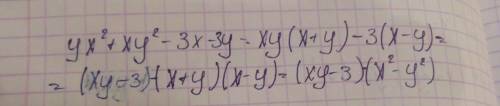 yx²+xy²-3x-3y=xy(x+y)-3(x-y)=
=(xy-3)·(x+y)(x-y)=(xy-3)(x²-y²)